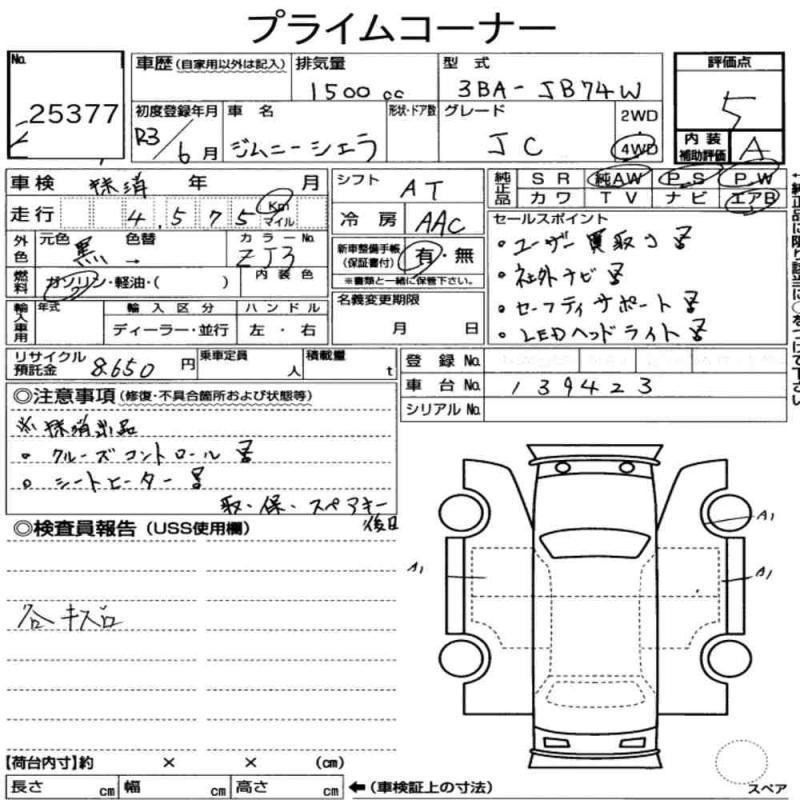 プライムコーナー
No. 25377
車歴(自家用以外は記入) 排気量 1500cc 型式 3BA-JB74W 評価点 5
初度登録年月 R3/6月 車名 ジムニーシエラ 形状・ドア数 グレード JC 2WD 4WD 内装補助評価 A
車検 抹消 年 月 シフト AT 純正品 SR 純AW P_S P_W
走行 4575 Km マイル 冷房 AAC カワ TV ナビ エアB
外色 元色 黒 色替 → カラーNo. ZJ3 新車整備手帳(保証書付) 有・無 ※書類と一緒に保管下さい。
セールスポイント
・ユーザー買取り
・社外ナビ
・セーフティサポート
・LEDヘッドライト
燃料 ガソリン・軽油・( ) 内装色
名義変更期限 月 日
輸入車用 年式 輸入区分 ハンドル
ディーラー・並行 左・右
リサイクル預託金 8.650円 乗車定員 人 積載量 t 登録No.
車台No. 139423
シリアルNo.
◎注意事項(修復・不具合箇所および状態等)
※抹消出品
・クルーズコントロール
・シートヒーター
取・保・スペアキー
後日
◎検査員報告(USS使用欄)
A1
A1
A1
【荷台内寸】約 × × (cm)
長さ cm 幅 cm 高さ cm ←(車検証上の寸法)
スペア